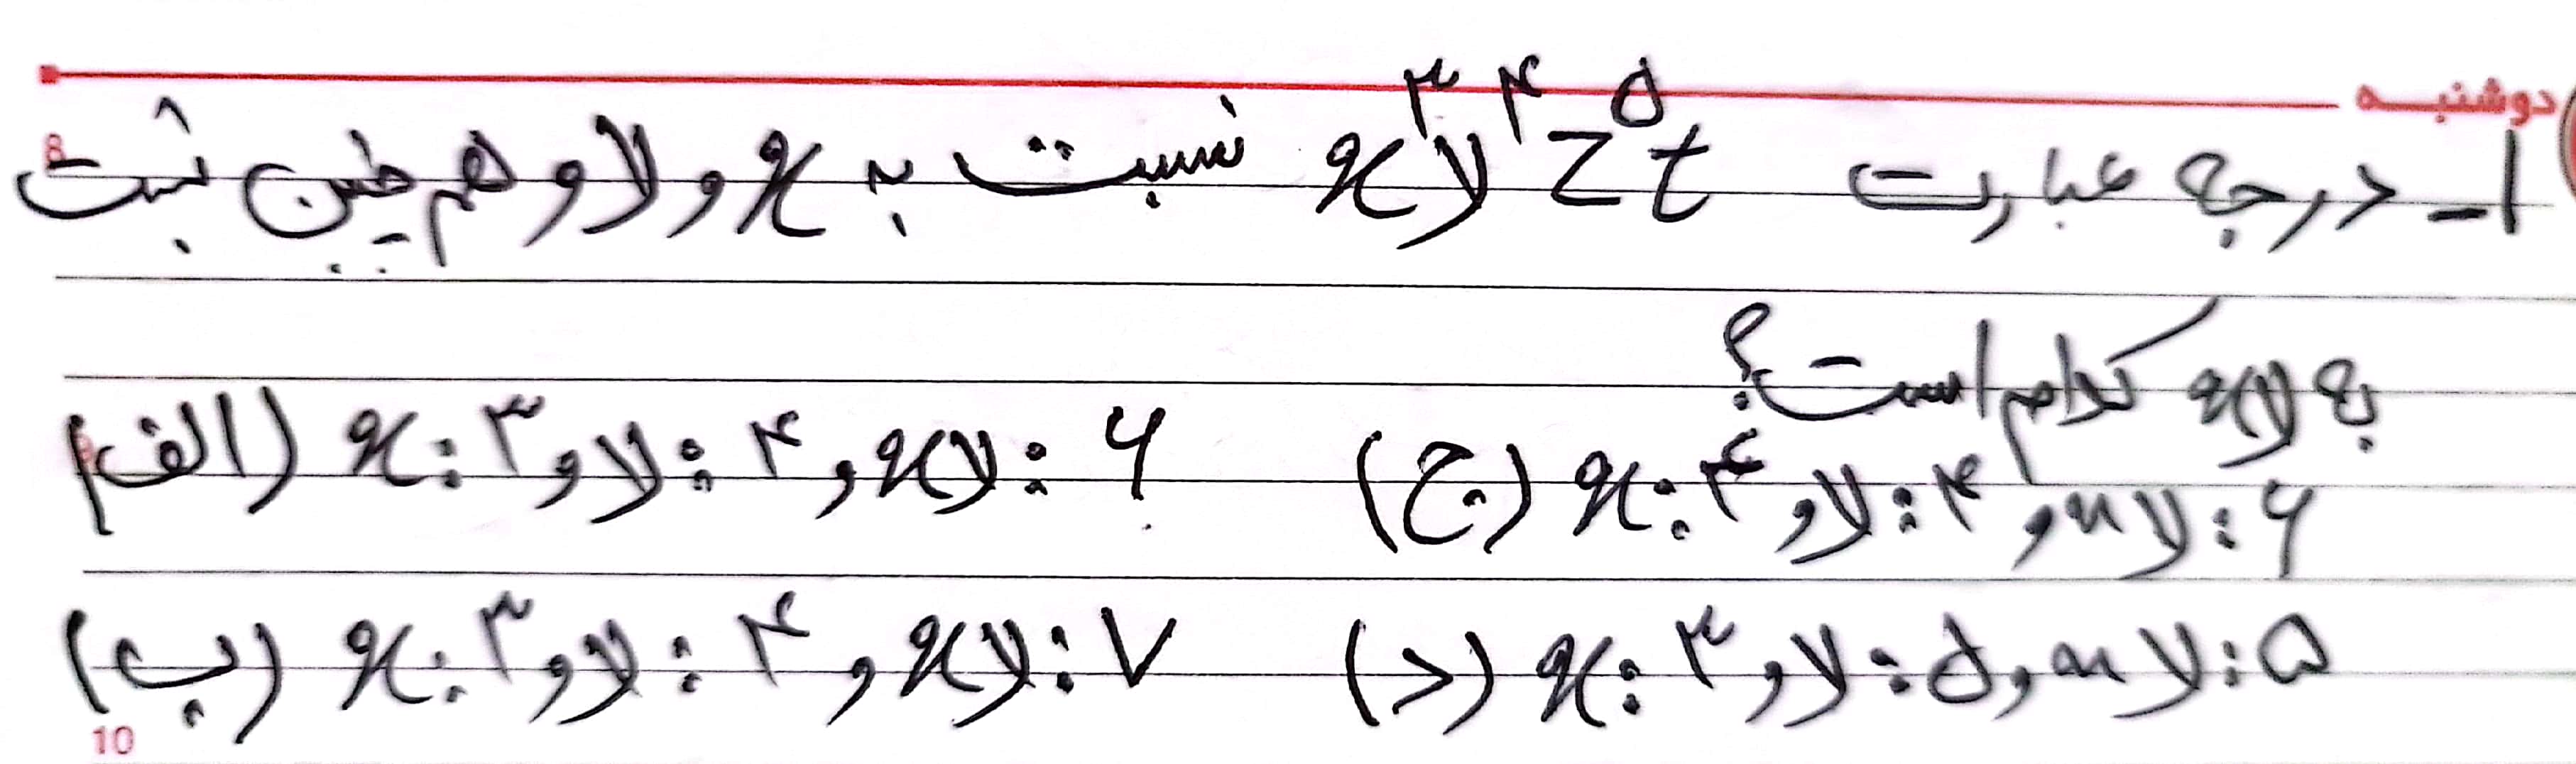 دوشنبه
۱- درجه عبارت x^۳y^۴z^۵t نسبت به x و y و هم چنین نسبت
8
به xy کدام است؟
(الف) x: ۳ و y: ۴ و xy: ۶ (ج) x: ۴ و y: ۴ و xy: ۶
(ب) x: ۳ و y: ۴ و xy: ۷ (د) x: ۳ و y: ۵ و xy: ۵
10